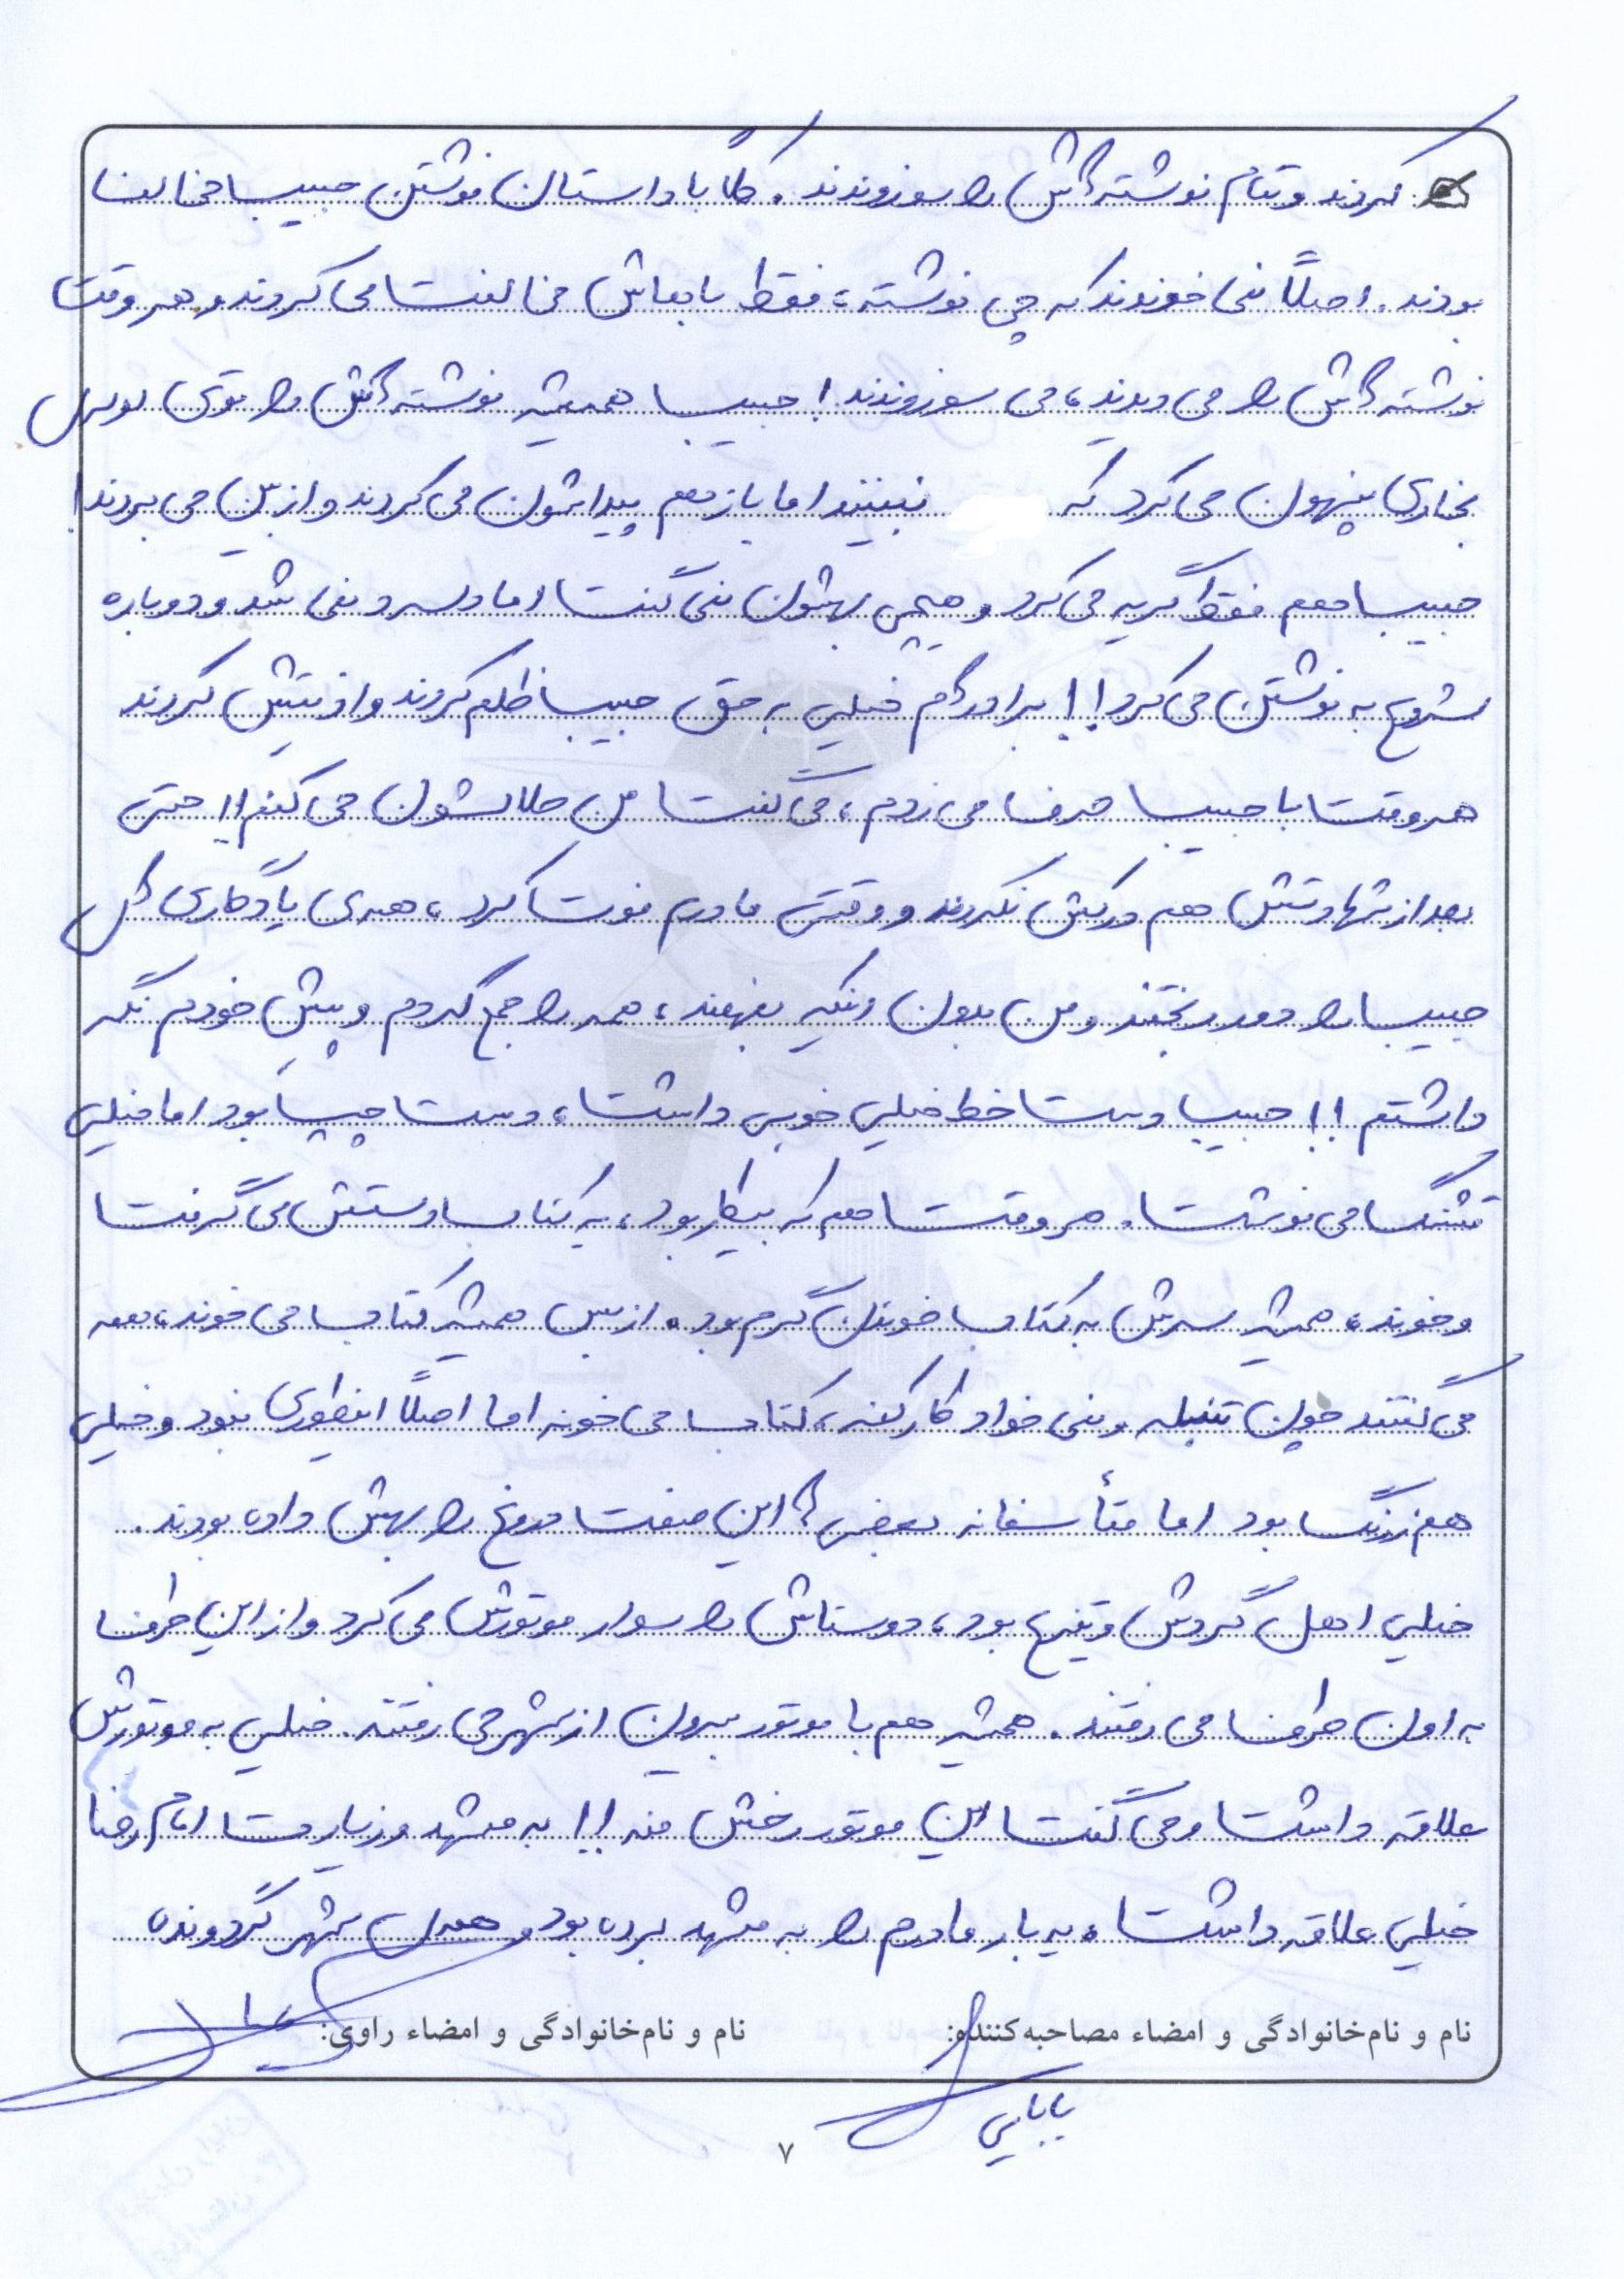 کردند و تمام نوشته‌هاش را سوزوندند. کلاً با داستان نوشتن حبیب مخالف
بودند. اصلاً نمی‌خوندند که چی نوشته، فقط باهاش مخالفت می‌کردند و هر وقت
نوشته‌هاش را می‌دیدند، می‌سوزوندند! حبیب همیشه نوشته‌هاش را توی لوله
بخاری پنهون می‌کرد که نبینند اما باز هم پیداشون می‌کردند و از بین می‌بردند!
حبیب هم فقط گریه می‌کرد و هیچی بهشون نمی‌گفت اما دلسرد نمی‌شد و دوباره
شروع به نوشتن می‌کرد!! برادرهام خیلی به حق حبیب ظلم کردند و اذیتش کردند
هر وقت با حبیب حرف می‌زدم، می‌گفت من حلالشون می‌کنم!! حتی
بعد از شهادتش هم درکش نکردند و وقتی مادرم فوت کرد، همه‌ی یادگاری‌های
حبیب را دور ریختند و من بدون اینکه بفهمند، همه را جمع کردم و پیش خودم نگه
داشتم!! حبیب دست خط خیلی خوبی داشت، دست چپ بود اما خیلی
قشنگ می‌نوشت. هر وقت هم که بیکار بود، یه کتاب دستش می‌گرفت
و می‌خوند، همیشه سرش به کتاب خوندن گرم بود. از بس همیشه کتاب می‌خوند، همه
می‌گفتند چون تنبله و نمی‌خواد کار کنه، کتاب می‌خونه اما اصلاً اینطوری نبود و خیلی
هم زرنگ بود اما متأسفانه بعضی‌ها این صفت دروغ را بهش داده بودند.
خیلی اهل گردش و تفریح بود، دوستاش را سوار موتورش می‌کرد و از این طرف
به اون طرف می‌رفتند. همیشه هم با موتور بیرون از شهر می‌رفتند. خیلی به موتورش
علاقه داشت و می‌گفت این موتور رخش منه!! به مشهد و زیارت امام رضا
خیلی علاقه داشت، یه بار مادرم را به مشهد برده بود و همه‌ی شهر گردونده
نام و نام‌خانوادگی و امضاء مصاحبه‌کننده:
نام و نام‌خانوادگی و امضاء راوی:
بابایی
۷